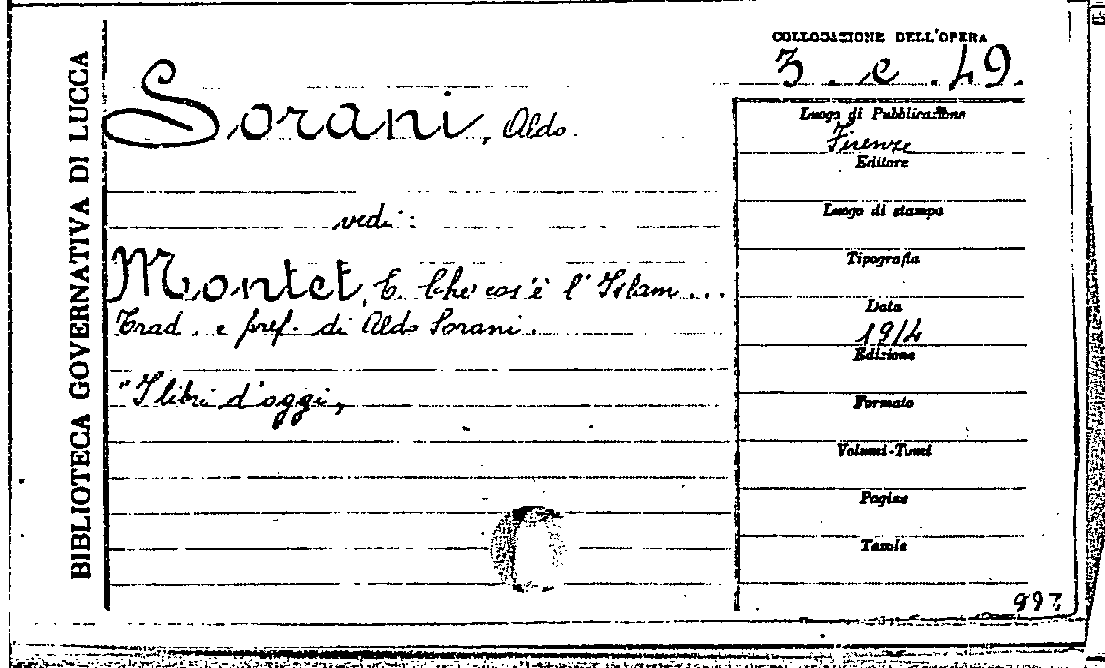 BIBLIOTECA GOVERNATIVA DI LUCCA
COLLOCAZIONE DELL'OPERA
3.e.49.
Sorani, Aldo.
vedi:
Montet, E. Che cos'è l'Islam...
Trad. e pref. di Aldo Sorani.
"I libri d'oggi„
Luogo di Pubblicazione
Firenze
Editore
Luogo di stampa
Tipografia
Data
1914
Edizione
Formato
Volumi-Tomi
Pagine
Tavole
997